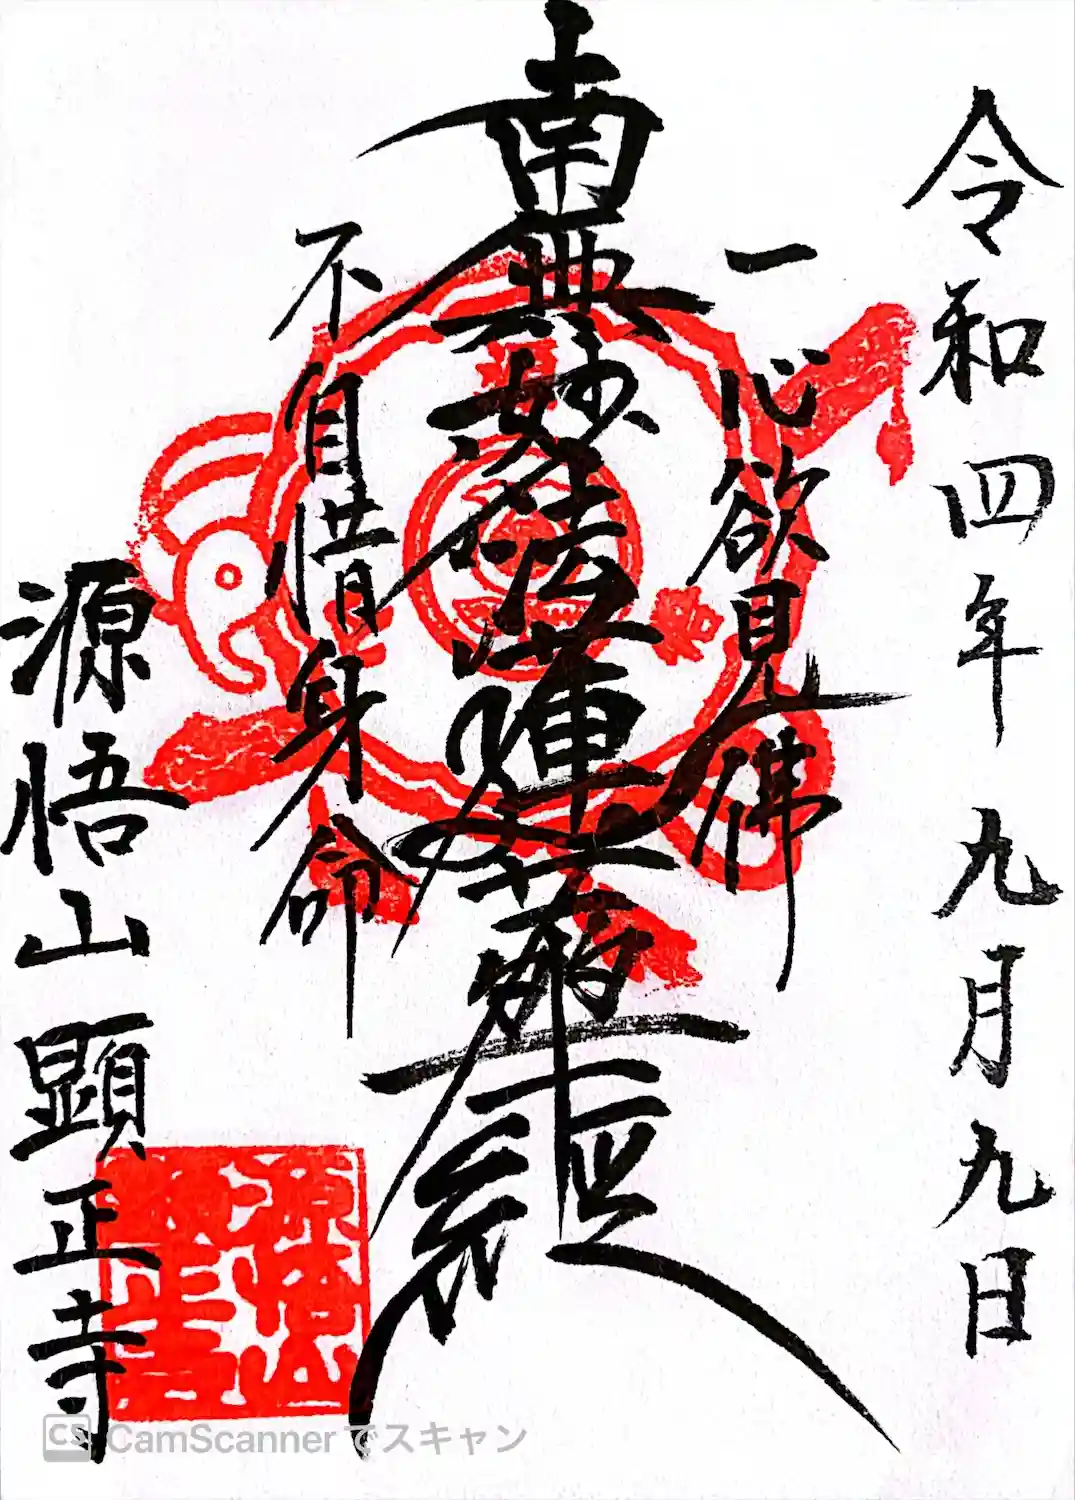 令和四年九月九日
一心欲見佛
南無妙法蓮華経
不自惜身命
源悟山顕正寺
源悟山
CS CamScannerでスキャン